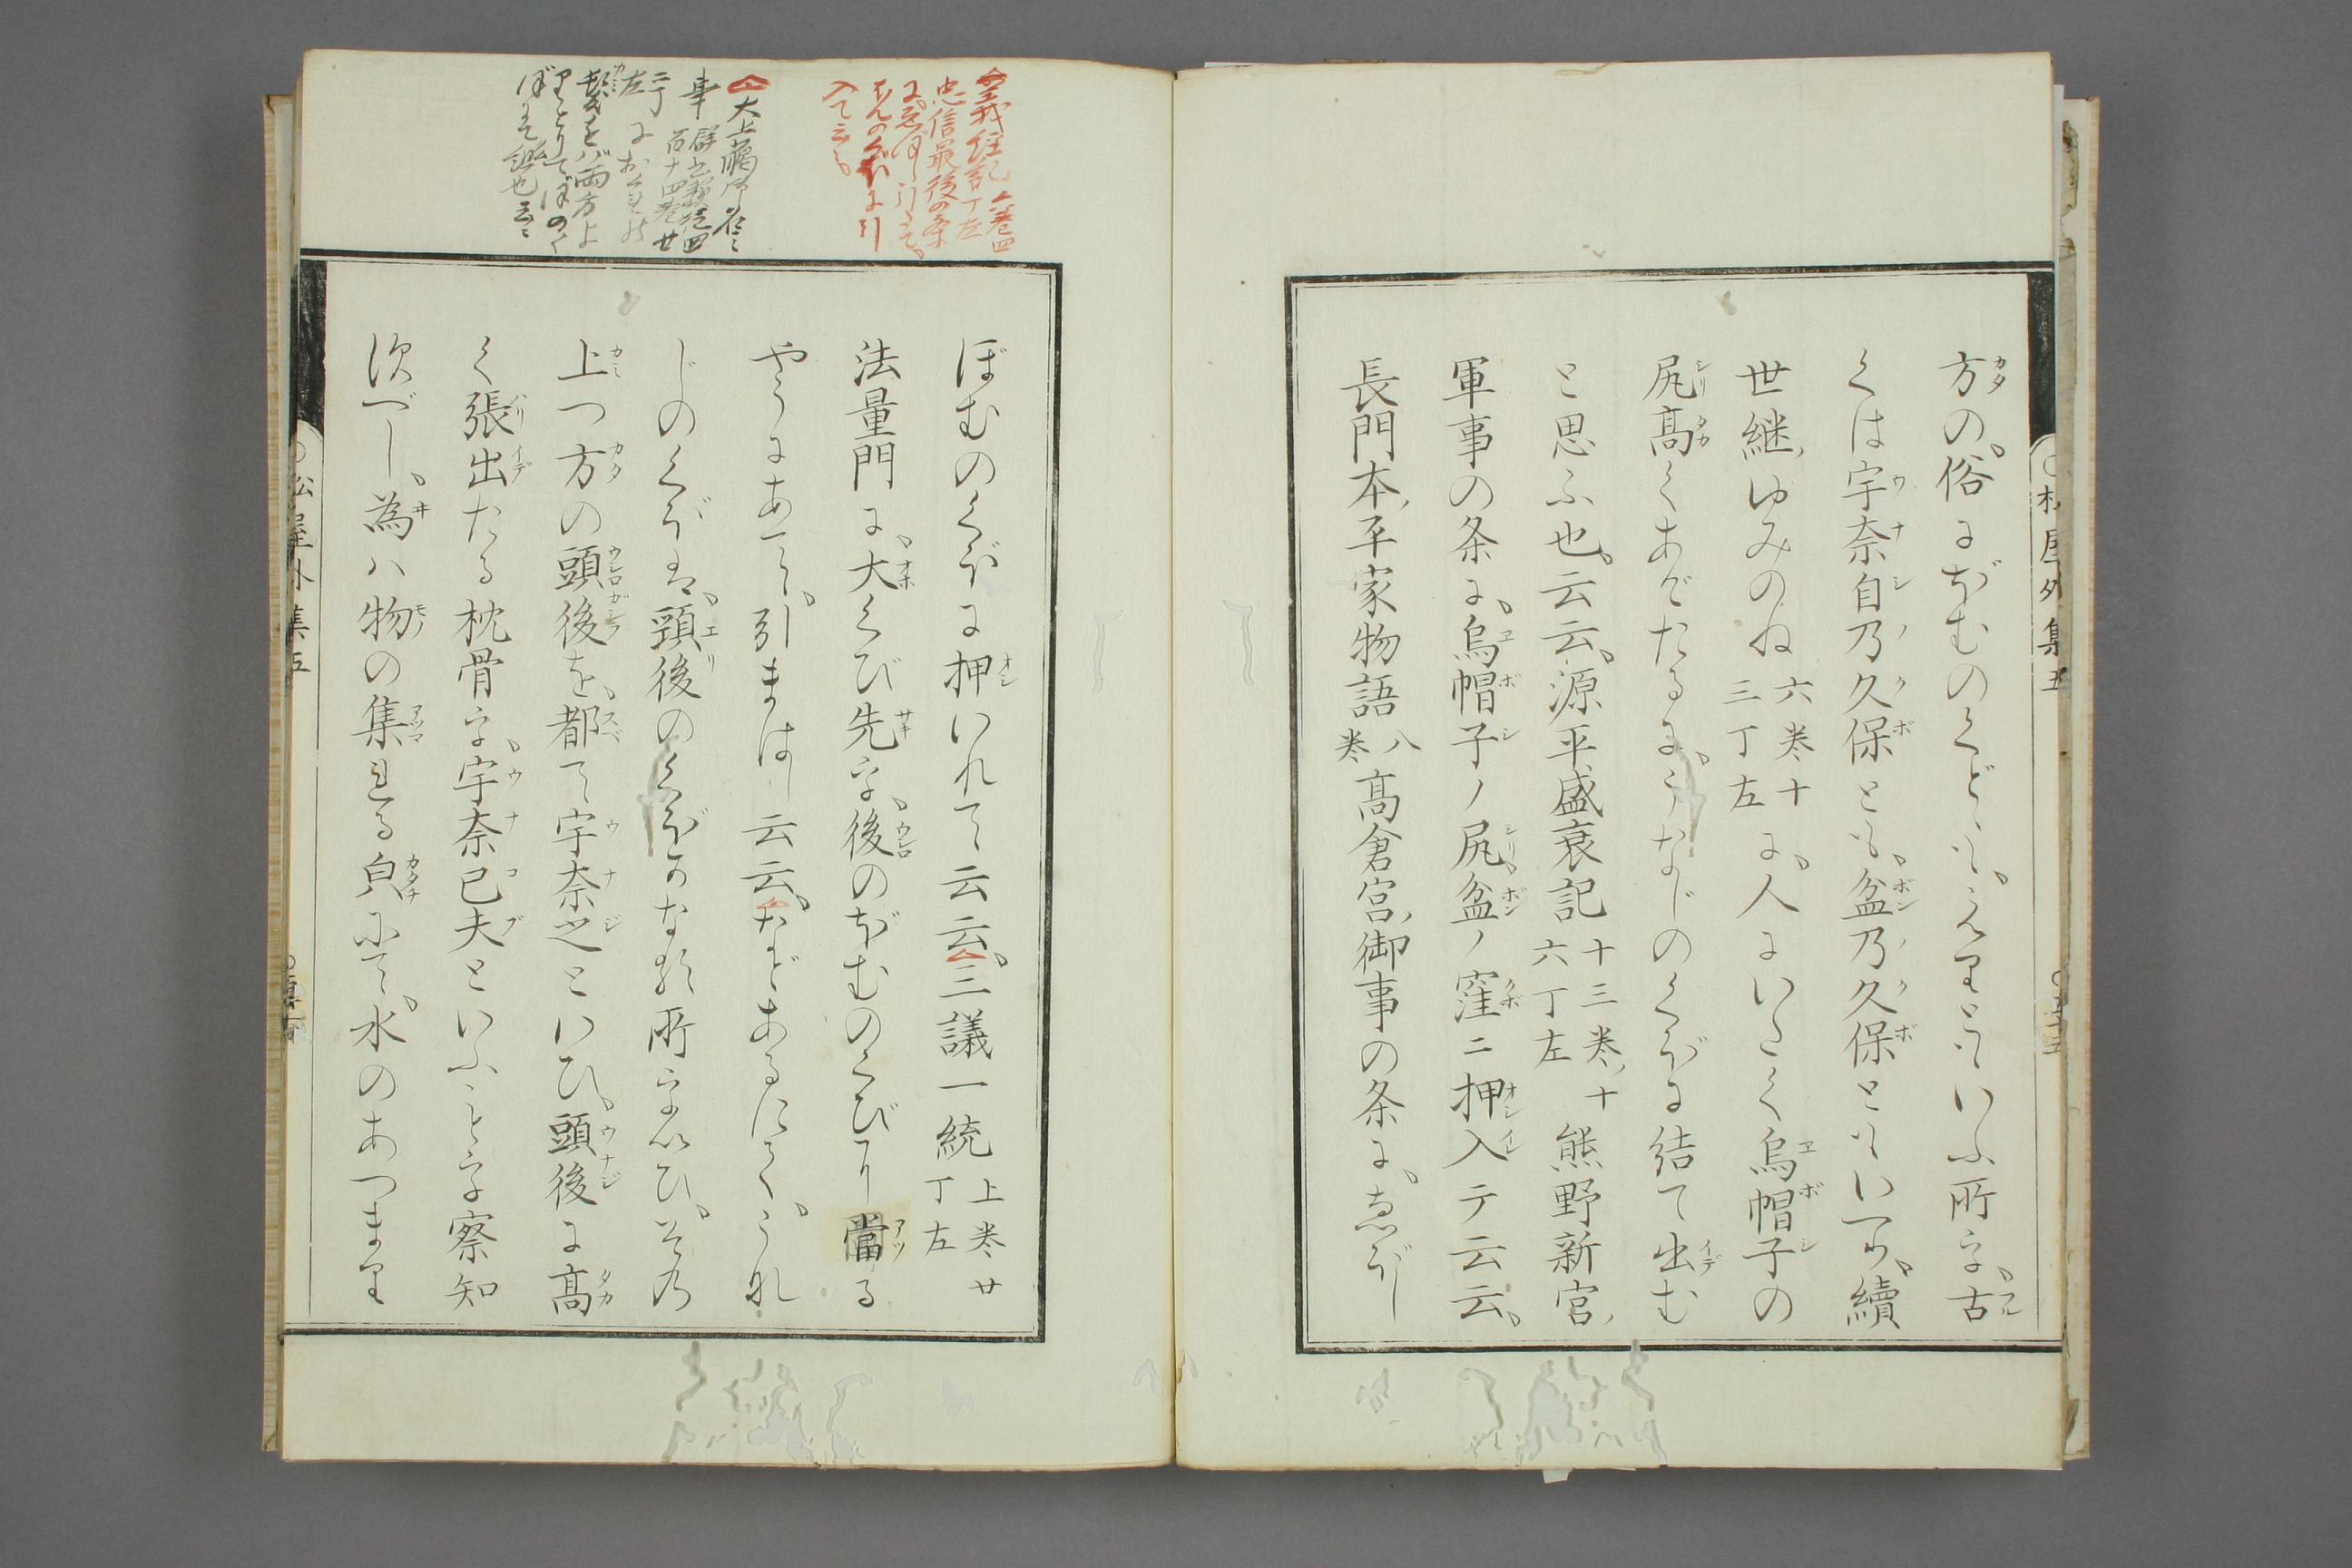 方の、俗にぼむのくどゝも、えりともいふ所を、古
くは宇奈自乃久保とも、盆乃久保ともいへり、續
世継、ゆみのね 六巻十三丁左 に、人にいたく烏帽子の
尻髙くあげたるに、うなじのくぼに結て出む
と思ふ也、云云、源平盛衰記 十三巻、十六丁左 熊野新宮、
軍事の条に、烏帽子ノ尻、盆ノ窪ニ押入テ云云、
長門本、平家物語 八巻 髙倉宮、御事の条に、ゑぼし
ぼむのくぼに押いれて云云、三議一統 上巻廿丁左
法量門に、大くび先を、後のぼむのくびに當る
やうにあてゝ、引まはし云云、などあるにて、うな
じのくぼは、頸後のくぼかなる所を以ひ、その
上つ方の頭後を、都て宇奈之といひ、頭後に髙
く張出たる枕骨を、宇奈已夫といふことを察知
すべし、為ハ物の集れる㒵にて、水のあつまり
義経記 六巻四丁左
忠信最後の条
にゑぼし引たて、
ぼんのくぼに引
入て云々
大上臈御名之
事 群書類従四百十四巻廿
二丁左 に
髪をバ両方よ
りとりてぼのく
ぼにて
也云々
松屋外集五
松屋外集五